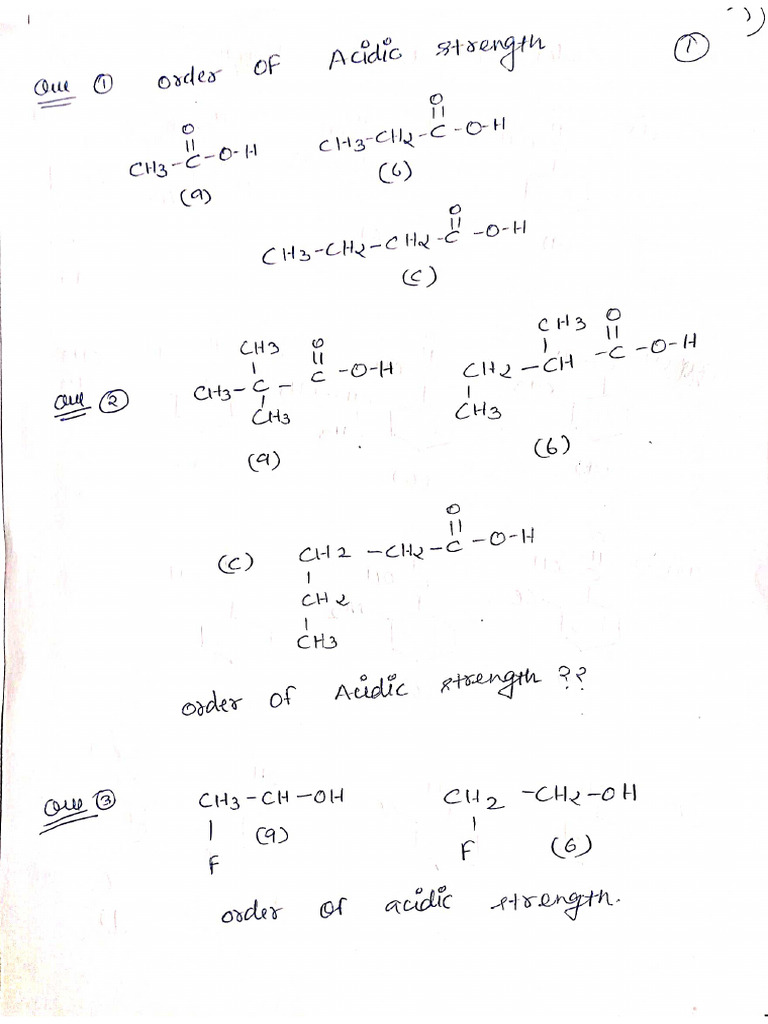 1
Que ① order OF Acidic strength ①
O
||
CH3-C-O-H
(a)
O
||
CH3-CH2-C-O-H
(b)
O
||
CH3-CH2-CH2-C-O-H
(c)
Que ②
CH3 O
| ||
CH3-C-C-O-H
|
CH3
(a)
CH3 O
| ||
CH2-CH-C-O-H
|
CH3
(b)
O
||
(c) CH2-CH2-C-O-H
|
CH2
|
CH3
order of Acidic strength ??
Que ③
CH3-CH-OH
|
F
(a)
CH2-CH2-OH
|
F
(b)
order of acidic strength.